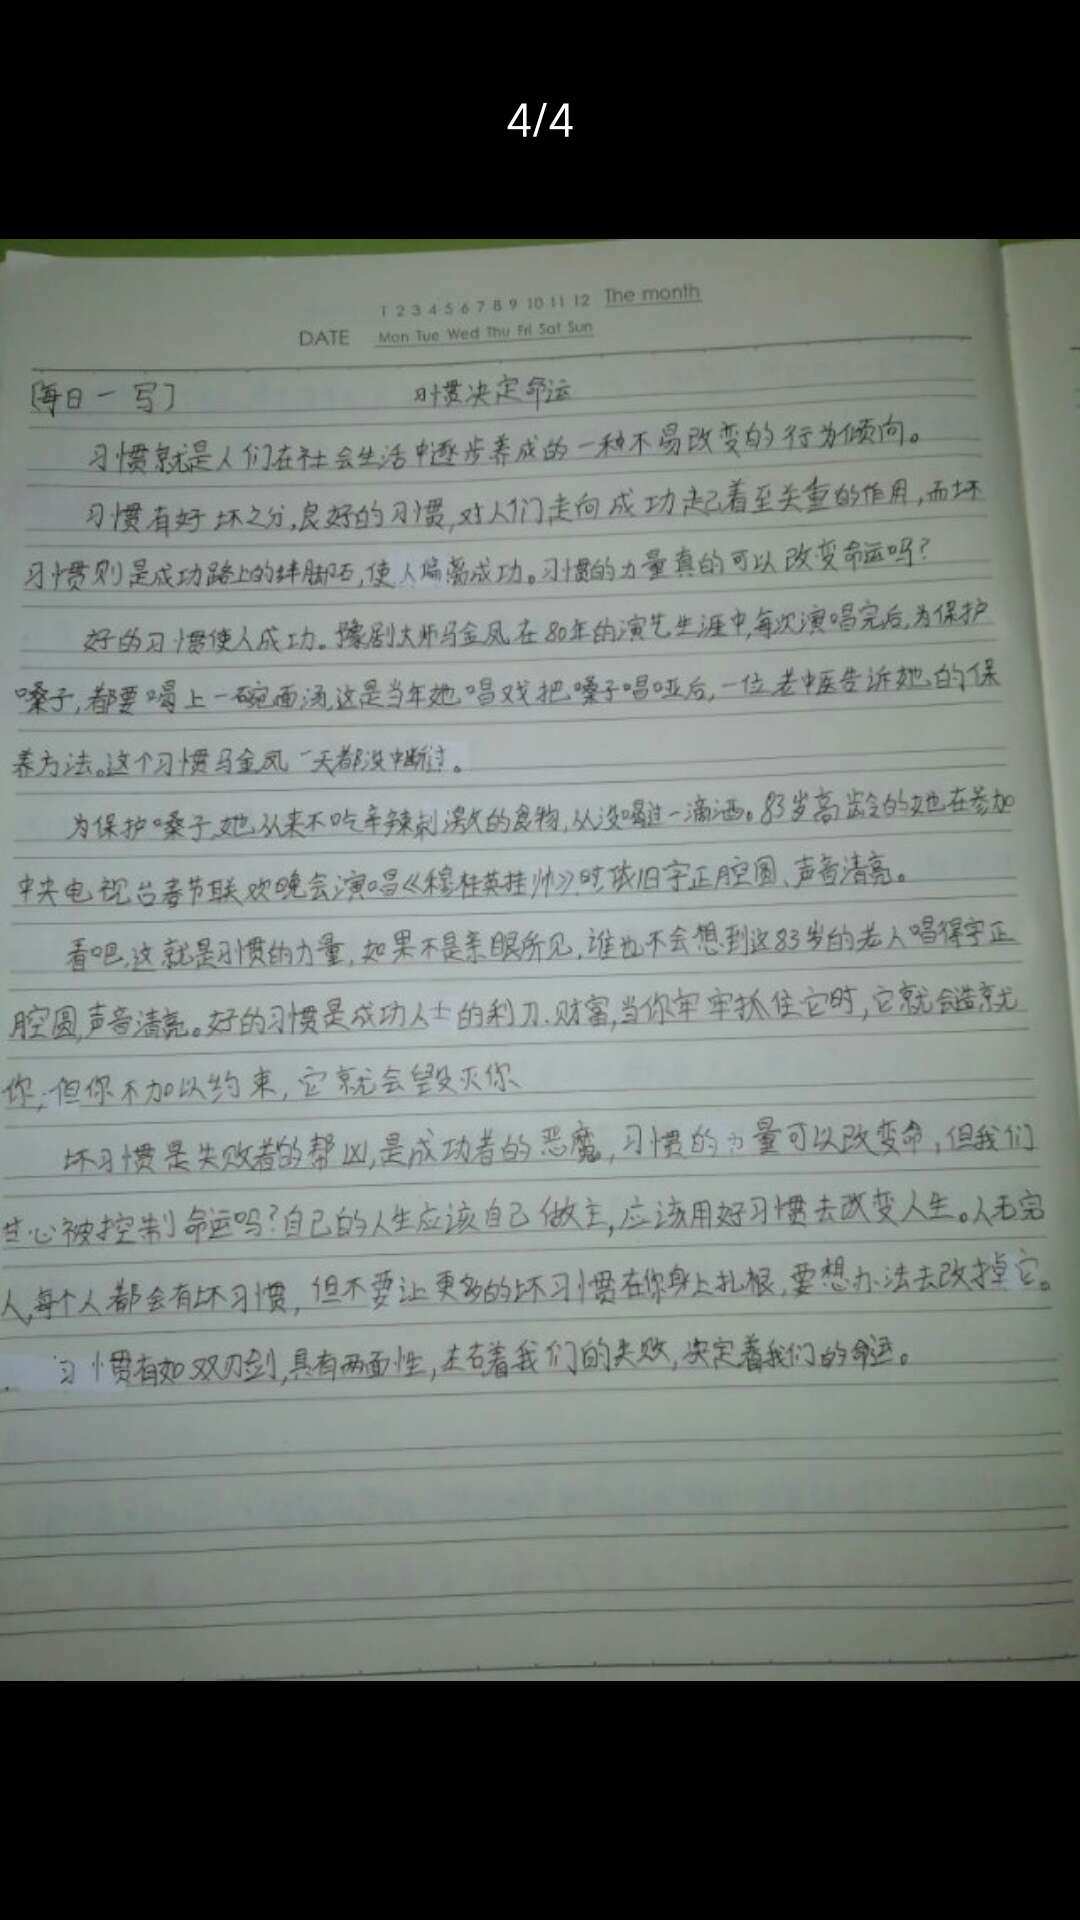 4/4
1 2 3 4 5 6 7 8 9 10 11 12 The month
DATE Mon Tue Wed Thu Fri Sat Sun
[每日一写] 习惯决定命运
习惯就是人们在社会生活中逐步养成的一种不易改变的行为倾向。
习惯有好坏之分,良好的习惯,对人们走向成功起着至关重的作用,而坏
习惯则是成功路上的绊脚石,使人偏离成功。习惯的力量真的可以改变命运吗?
好的习惯使人成功。豫剧大师马金凤在80年的演艺生涯中,每次演唱完后,为保护
嗓子,都要喝上一碗面汤,这是当年她唱戏把嗓子唱哑后,一位老中医告诉她的保
养方法。这个习惯马金凤一天都没中断过。
为保护嗓子,她从来不吃辛辣刺激的食物,从没喝过一滴酒。83岁高龄的她在参加
中央电视台春节联欢晚会演唱《穆桂英挂帅》时依旧字正腔圆、声音清亮。
看吧,这就是习惯的力量,如果不是亲眼所见,谁也不会想到这83岁的老人唱得字正
腔圆,声音清亮。好的习惯是成功人士的利刀.财富,当你牢牢抓住它时,它就会造就
你,但你不加以约束,它就会毁灭你
坏习惯是失败者的帮凶,是成功者的恶魔,习惯的力量可以改变命,但我们
甘心被控制命运吗?自己的人生应该自己做主,应该用好习惯去改变人生。人无完
人,每个人都会有坏习惯,但不要让更多的坏习惯在你身上扎根,要想办法去改掉它。
习惯有如双刃剑,具有两面性,左右着我们的失败,决定着我们的命运。